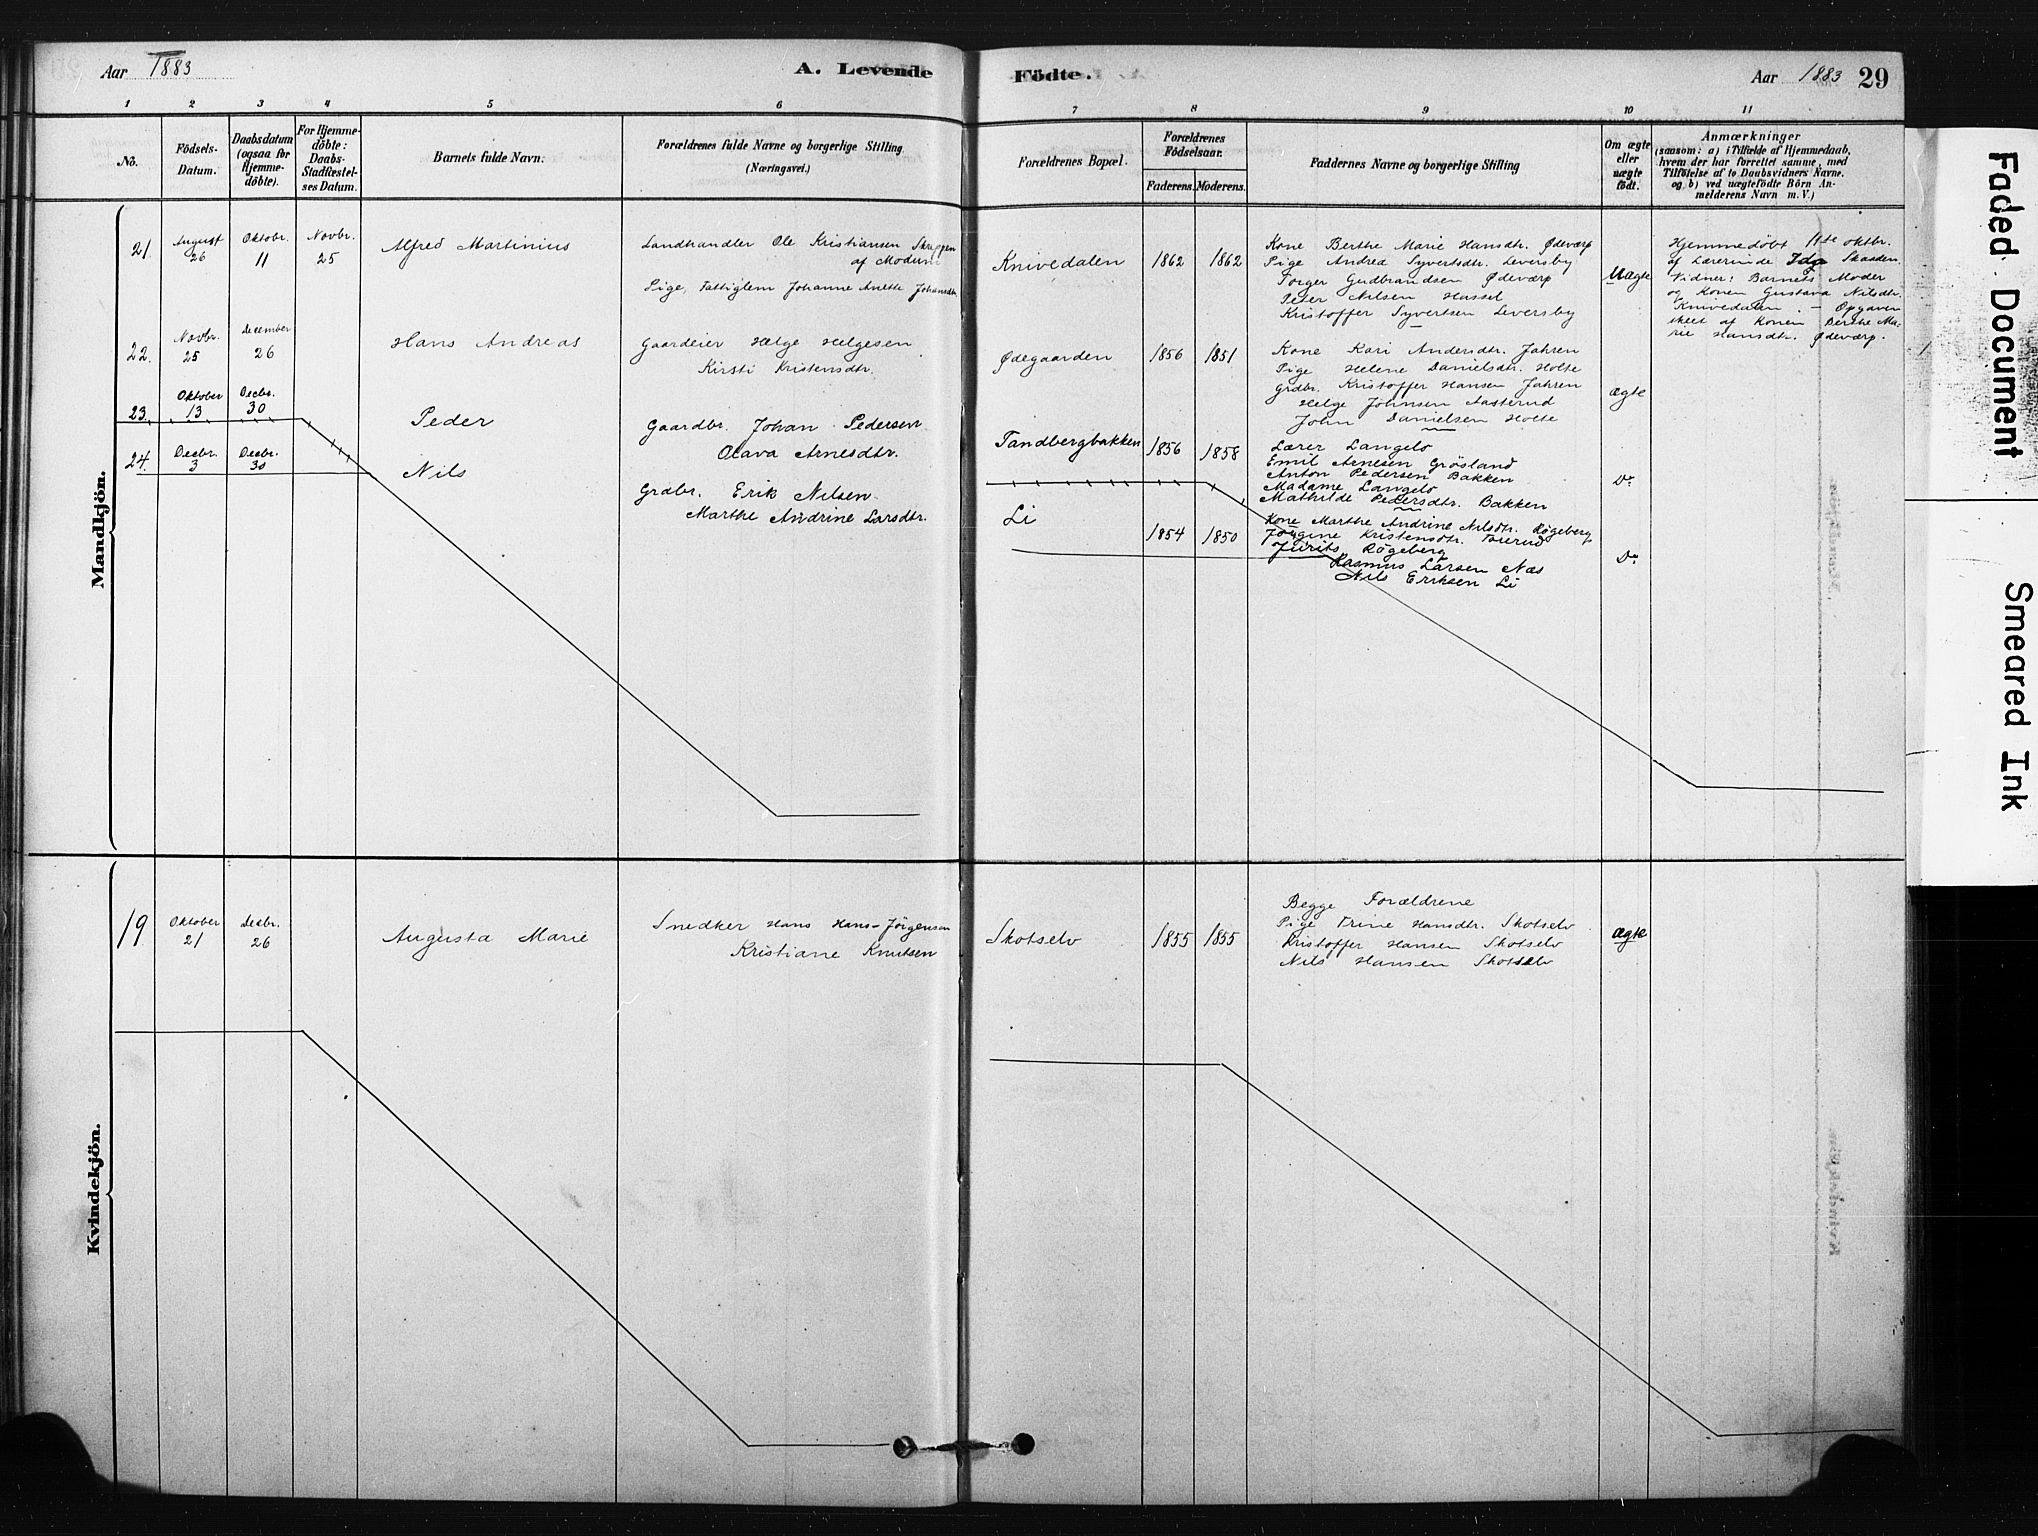 Aar 1883
A. Levende
Födte.
Aar 1883 29
1 2 3 4 5 6 7 8 9 10 11
No.
Födsels-
Datum.
Daabsdatum
(ogsaa for
Hjemme-
döbte).
For Hjemme-
döbte:
Daabs-
Stadfæstel-
ses Datum.
Barnets fulde Navn.
Forældrenes fulde Navne og borgerlige Stilling
(Næringsvei.)
Forældrenes Bopæl.
Forældrenes
Födselsaar.
Faderens. Moderens.
Faddernes Navne og borgerlige Stilling
Om ægte
eller
uægte
födt.
Anmærkninger
(saasom: a) i Tilfælde af Hjemmedaab,
hvem der har forrettet samme, med
Tilföielse af to Daabsvidners Navne,
og b) ved uægtefödte Börn An-
melderens Navn m. V.)
Mandkjön.
21. August 26 Oktobr. 11 Novbr. 25
Alfred Martinius
Landhandler Ole Kristiansen
af Modum
Pige, Fattiglem Johanne Anette Johansdtr.
Knivedalen 1862 1862
Kone Berthe Marie Hansdtr. Ødeværp
Pige Andrea Syvertsdtr. Leversby
Torger Gudbrandsen Ødeværp
Peter Nilsen Hassel
Kristoffer Syvertsen Leversby
Uægte
Hjemmedøbt 11te oktbr.
af Lærerinde Ida Skaaden
Vidner: Barnets Moder
og Konen Gustava Nilsdtr.
Knivedalen. – Opgaven
skeet af Konen Berthe Ma-
rie Hansdtr. Ødeværp.
22. Novbr. 25 December 26
Hans Andreas
Gaardeier Helge Helgesen
Kirsti Kristensdtr.
Ødegaarden 1856 1851
Kone Kari Andersdtr. Jahren
Pige Helene Danielsdtr. Holte
Grdbr. Kristoffer Hansen Jahren
Helge Johnsen Aasterud
John Danielsen Holte
ægte
23. Oktober 13 Decbr. 30
Peder
Gaardbr. Johan Pedersen
Olava Arnesdtr.
Tandbergbakken 1856 1858
Lærer Langelo
Emil Arnesen Grøsland
Anton Pedersen Bakken
Madame Langelo
Mathilde Pedersdtr. Bakken
Do
24. Decbr. 3 Decbr. 30
Nils
Grdbr. Erik Nilsen
Marthe Andrine Larsdtr.
Li 1854 1850
Kone Marthe Andrine Nilsdtr. Røgeberg
Jørgine Kristensdtr.
Røgeberg
Rasmus Larsen Næs
Nils Eriksen Li
Do
Kvindekjön.
19 Oktober 21 Decbr. 26
Augusta Marie
Snedker Hans Hans-Jörgensen
Kristiane Knutsen
Skotselv 1855 1855
Begge Forældrene
Pige Trine Hansdtr. Skotselv
Kristoffer Hansen Skotselv
Nils Hansen Skotselv
ægte
Faded Document
Smeared Ink